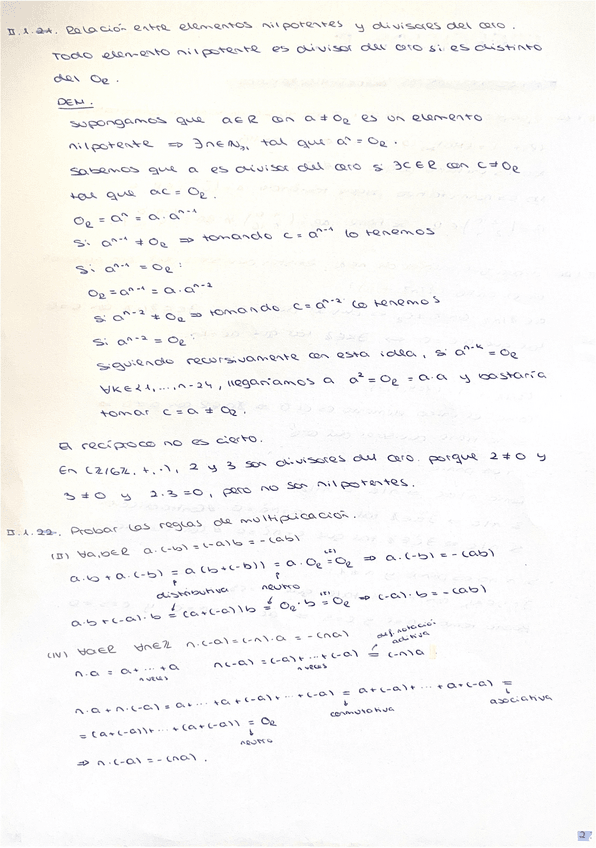 II.1.21. Relación entre elementos nilpotentes y divisores del cero.
Todo elemento nilpotente es divisor del cero si es distinto
del 0_R.
DEM.
Supongamos que a∈R con a≠0_R es un elemento
nilpotente ⇒ ∃n∈ℕ≥1 tal que aⁿ=0_R.
Sabemos que a es divisor del cero si ∃c∈R con c≠0_R
tal que ac=0_R.
0_R = aⁿ = a·aⁿ⁻¹
Si aⁿ⁻¹ ≠ 0_R ⇒ tomando c=aⁿ⁻¹ lo tenemos
Si aⁿ⁻¹ = 0_R:
0_R = aⁿ⁻¹ = a·aⁿ⁻²
si aⁿ⁻² ≠ 0_R ⇒ tomando c=aⁿ⁻² lo tenemos
si aⁿ⁻² = 0_R:
siguiendo recursivamente con esta idea, si aⁿ⁻ᵏ = 0_R
∀k∈{1,...,n-2}, llegaríamos a a²=0_R=a·a y bastaría
tomar c=a≠0_R.
El recíproco no es cierto.
En (ℤ/6ℤ, +, ·), 2 y 3 son divisores del cero porque 2≠0 y
3≠0 y 2·3=0, pero no son nilpotentes.
II.1.22. Probar las reglas de multiplicación.
(II) ∀a,b∈R a·(-b)=(-a)b=-(ab)
a·b+a·(-b) = a(b+(-b)) = a·0_R =⁽ᴵ⁾ 0_R ⇒ a·(-b)=-(ab)
distributiva neutro
a·b+(-a)·b = (a+(-a))b = 0_R·b =⁽ᴵ⁾ 0_R ⇒ (-a)·b=-(ab)
(IV) ∀a∈R ∀n∈ℤ n·(-a)=(-n)·a=-(na)
def. notación
aditiva
n·a = a+···+a n(-a)=(-a)+···+(-a) = (-n)a
n veces n veces
n·a+n·(-a)=a+···+a+(-a)+···+(-a) = a+(-a)+···+a+(-a) =
conmutativa asociativa
=(a+(-a))+···+(a+(-a)) = 0_R
neutro
⇒ n·(-a)=-(na).
2